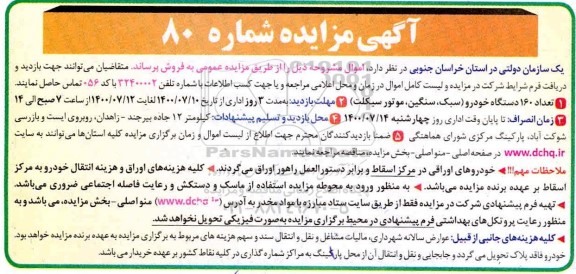 آگهی مزایده شماره ۸۰
یک سازمان دولتی در استان خراسان جنوبی در نظر دارد، اموال مشروحه ذیل را از طریق مزایده عمومی به فروش برساند. متقاضیان می‌توانند جهت بازدید و
دریافت فرم شرایط شرکت در مزایده و لیست کامل اموال در زمان و محل اعلامی مراجعه و یا جهت کسب اطلاعات با شماره تلفن ۳۲۴۰۰۰۰۲ با کد ۰۵۶ تماس حاصل نمایند.
۱ تعداد ۱۶۰ دستگاه خودرو (سبک، سنگین، موتور سیکلت) ۲ مهلت بازدید: بمدت ۳ روز اداری از تاریخ ۱۴۰۰/۰۷/۱۰ لغایت ۱۴۰۰/۰۷/۱۲ از ساعت ۷ صبح الی ۱۴
۳ زمان انصراف: تا پایان وقت اداری روز چهارشنبه ۱۴۰۰/۰۷/۱۴ ۴ محل بازدید و تسلیم پیشنهادات: کیلومتر ۱۲ جاده بیرجند - زاهدان، روبروی ایست و بازرسی
شوکت آباد، پارکینگ مرکزی شورای هماهنگی ۵ ضمنا بازدیدکنندگان محترم جهت اطلاع از لیست اموال و زمان برگزاری مزایده کلیه استان‌ها می‌توانند به سایت
www.dchq.ir در صفحه اصلی - منو اصلی - بخش مزایده مناقصه مراجعه نمایند.
ملاحظات مهم!!! خودروهای اوراقی در مرکز اسقاط و برابر دستورالعمل راهور اوراق می‌گردند. کلیه هزینه‌های اوراق و هزینه انتقال خودرو به مرکز
اسقاط بر عهده برنده مزایده می‌باشد. به منظور ورود به محوطه مزایده استفاده از ماسک و دستکش و رعایت فاصله اجتماعی ضروری می‌باشد.
تهیه فرم پیشنهادی شرکت در مزایده فقط از طریق سایت ستاد مبارزه با مواد مخدر به آدرس (www.dchq.ir) منو اصلی - بخش مزایده، می‌باشد و به
منظور رعایت پروتکل‌های بهداشتی فرم پیشنهادی در محیط برگزاری مزایده به صورت فیزیکی تحویل نخواهد شد.
کلیه هزینه‌های جانبی از قبیل: عوارض سالانه شهرداری، مالیات مشاغل و نقل و انتقال سند و سهم هزینه های مربوط به برگزاری مزایده به عهده برنده مزایده خواهد بود.
خودرو فاقد پلاک تحویل می گردد و جابجایی و نقل و انتقال آن از محل پارکینگ به مراکز شماره گذاری در کلیه نقاط کشور بر عهده خریدار می باشد.